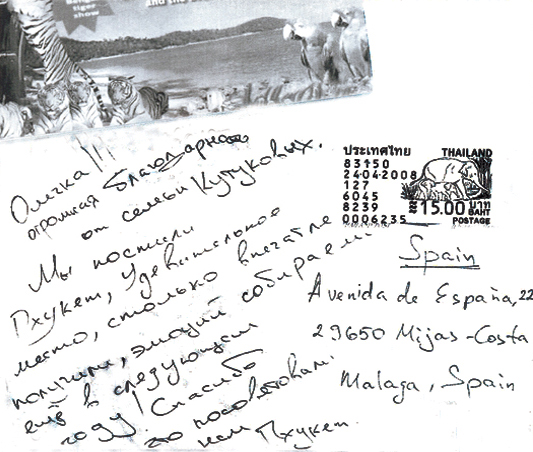 tiger
show
Олечка!!!
огромная благодарность
от семьи Кутуковых.
Мы постили
Пхукет, Удевительное
место, столько впечатле
получили, эмоций собираем
ещё в следующем
году! Спасибо
что посоветовали
нам Пхукет.
ประเทศไทย THAILAND
83150
24-04-2008
127
6045
8239
0006235
≈15.00 บาท
BAHT
POSTAGE
Spain
Avenida de España, 22
29650 Mijas-Costa
Malaga, Spain